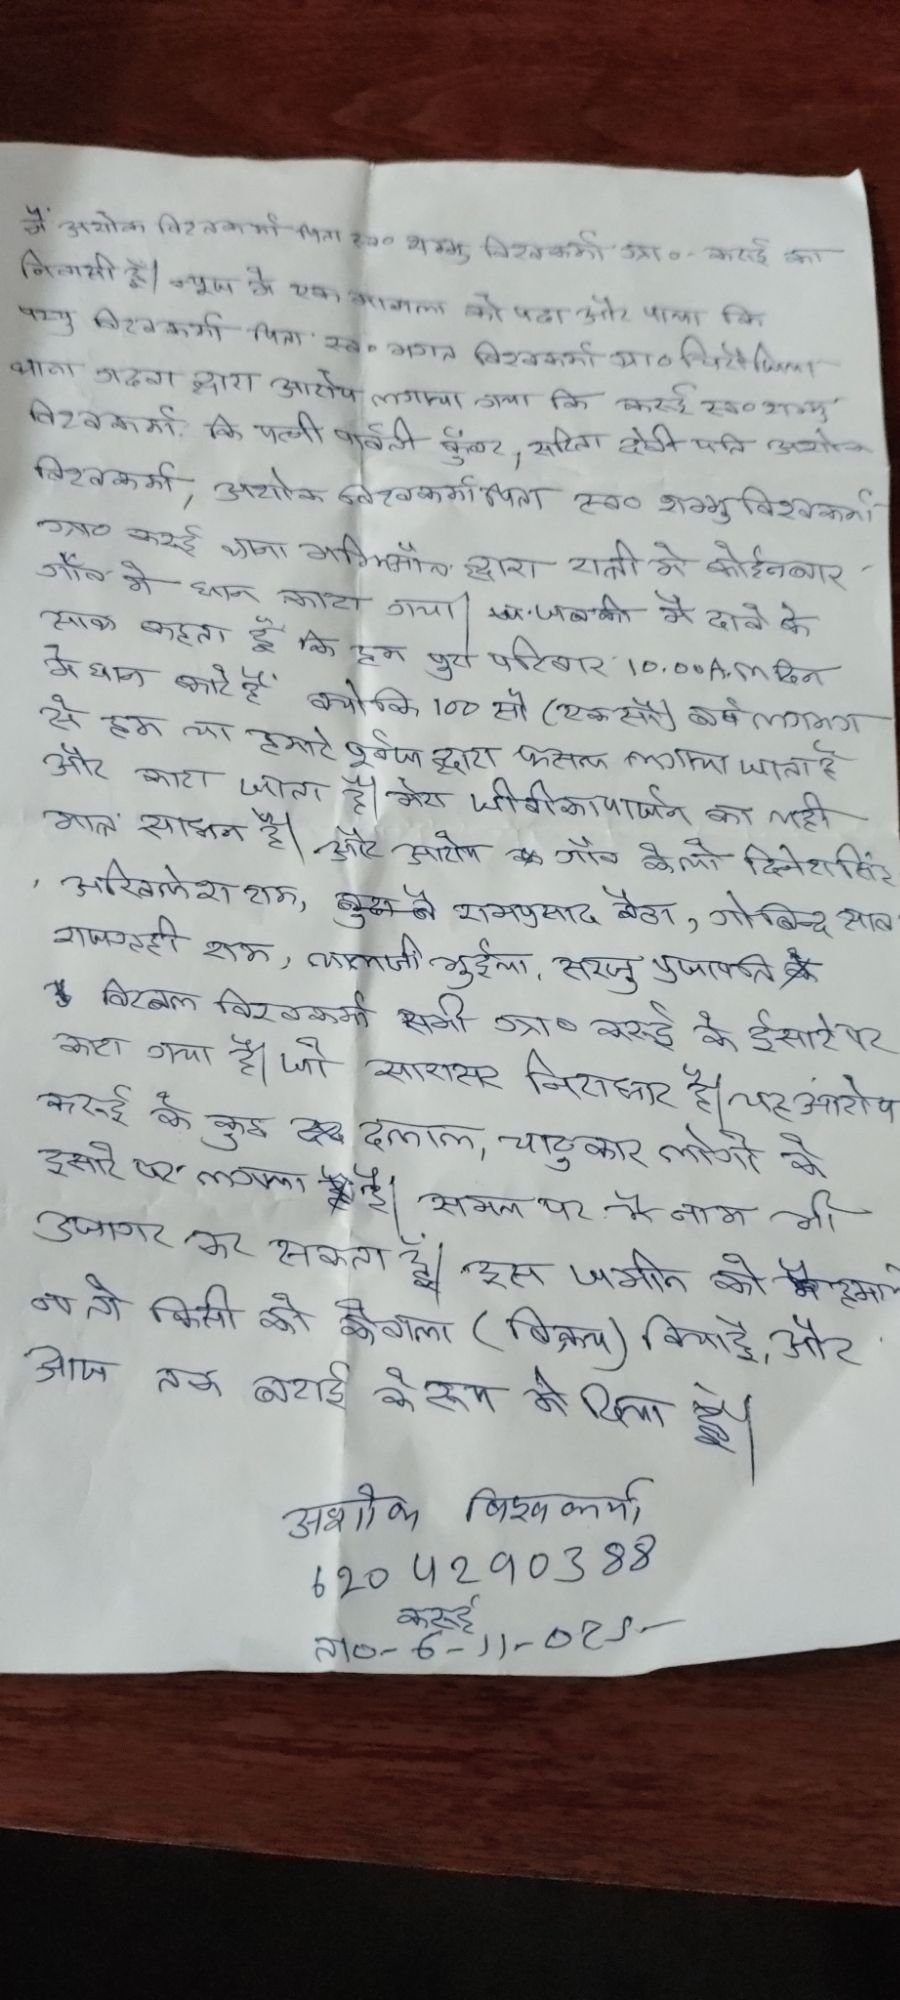 मैं अशोक विश्वकर्मा पिता स्व० शम्भु विश्वकर्मा ग्रा०- करुई का
निवासी हूँ। न्यूज मे एक मामला को पढा और पाया कि
विश्वकर्मा पिता स्व० भगत विश्वकर्मा ग्रा०
थाना गढवा द्वारा आरोप लगाया गया कि करुई स्व० शम्भु
विश्वकर्मा कि पत्नी पार्वती कुँवर, सरिता देवी पति अशोक
विश्वकर्मा, अशोक विश्वकर्मा पिता स्व० शम्भु विश्वकर्मा
ग्रा० करुई थाना मझिआँव द्वारा रात्री मे कोईनबार
गाँव मे धान काटा गया। जबकी मै दावे के
साथ कहता हूँ कि हम पुरा परिवार 10.00A.m दिन
मे धान काटे हैं क्योकि 100 सौ (एक सौ) वर्ष लगभग
से हम या हमारे पूर्वज द्वारा फसल लगाया जाता है
और काटा जाता है। मेरा जीवीकापार्जन का यही
मात्र साधन है। और आरोप गाँव के दिनेश सिंह
अखिलेश राम, रामप्रसाद बैठा, गोबिन्द साव
राजगृही राम, लालजी भुईया, सरजु प्रजापति
विरबल विश्वकर्मा सभी ग्रा० करुई के ईसारे पर
काटा गया है। जो सारासर निराधार है। यह आरोप
करुई के कुछ दलाल, चाटुकार लोगो के
इसारे पर लगाया है। समय पर मै नाम भी
उजागर कर सकता हूँ। इस जमीन को हमने
न तो किसी को केवाला (विक्रय) किया है, और
आज तक बटाई के रूप मे दिया है।
अशोक विश्वकर्मा
62042 90388
करुई
ता०- 6-11-025-